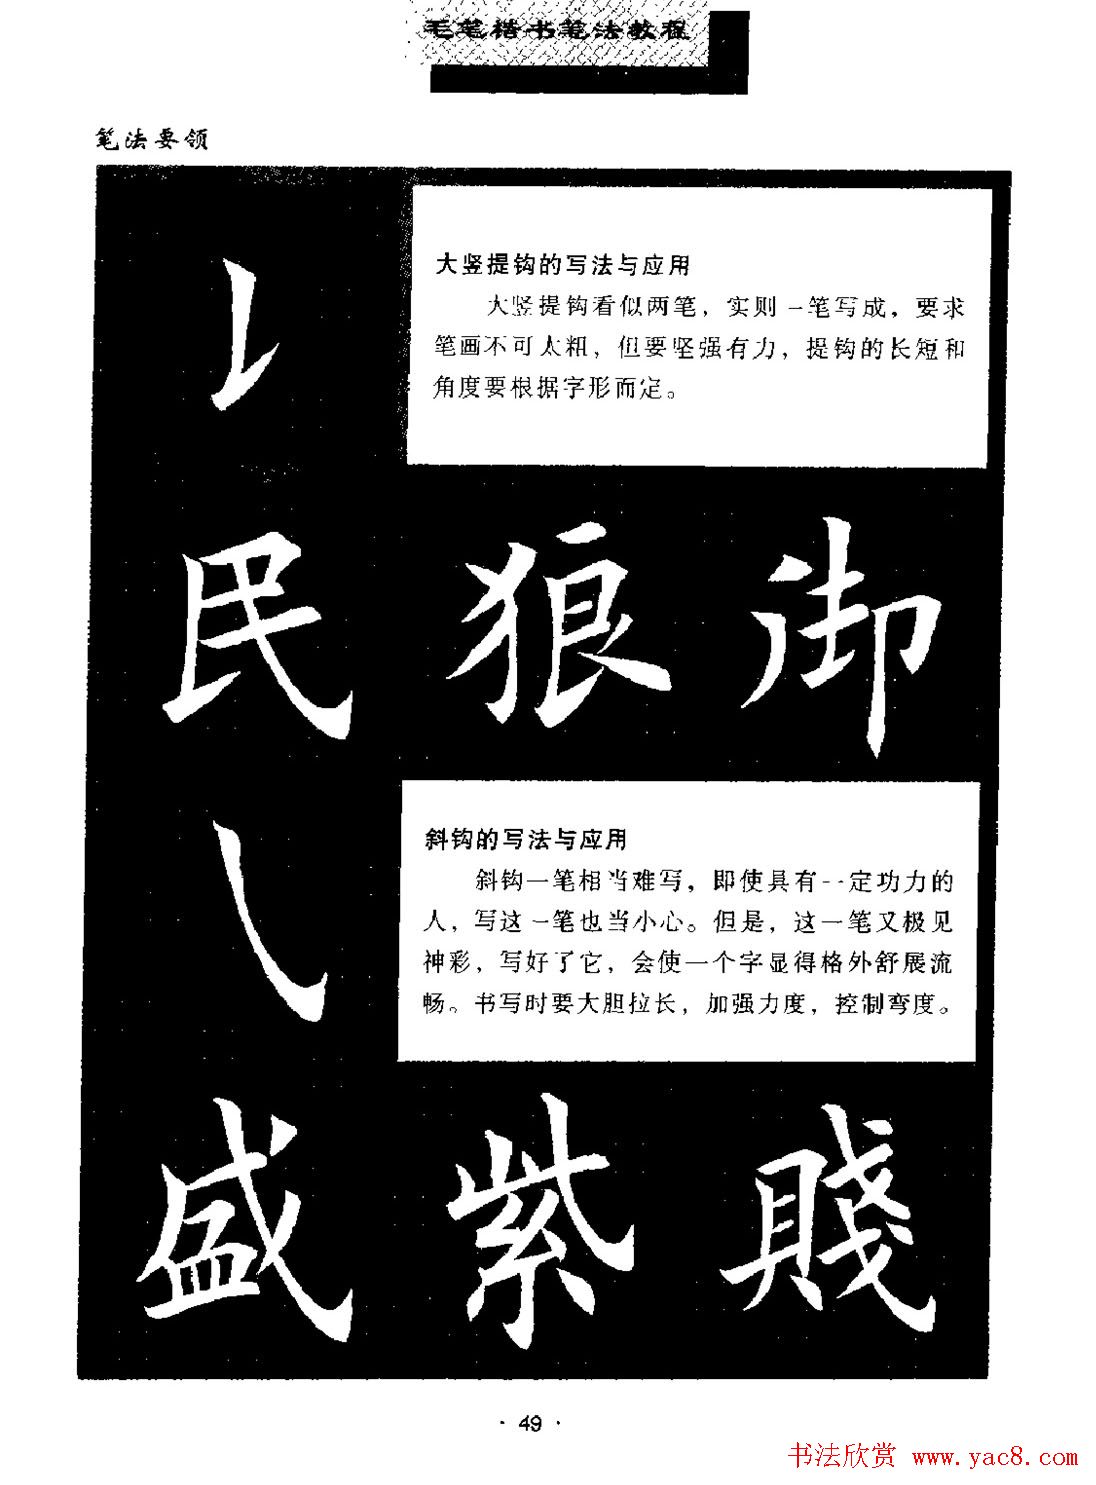 毛笔楷书笔法教程
笔法要领
大竖提钩的写法与应用
大竖提钩看似两笔，实则一笔写成，要求
笔画不可太粗，但要坚强有力，提钩的长短和
角度要根据字形而定。
民 狼 御
斜钩的写法与应用
斜钩一笔相当难写，即使具有一定功力的
人，写这一笔也当小心。但是，这一笔又极见
神彩，写好了它，会使一个字显得格外舒展流
畅。书写时要大胆拉长，加强力度，控制弯度。
盛 紫 賤
· 49 ·
书法欣赏 www.yac8.com